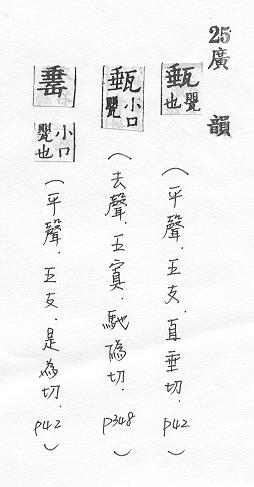 25廣韻
甀 甖也 (平聲．五支．直垂切．P42)
甀 小口甖 (去聲．五寘．馳偽切．P348)
小口甖也 (平聲．五支．是為切．P42)